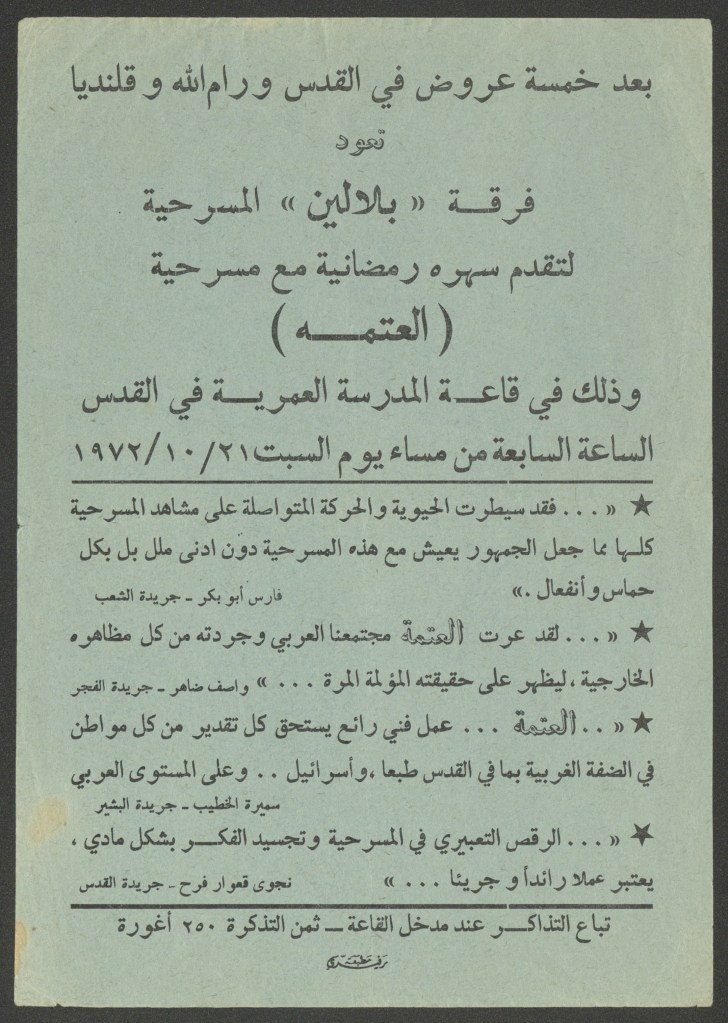 بعد خمسة عروض في القدس ورام الله وقلنديا
تعود
فرقـــة « بلالين » المسرحية
لتقدم سهره رمضانية مع مسرحية
( العتمـــه )
وذلك في قاعـــة المدرسة العمريـــة في القدس
الساعة السابعة من مساء يوم السبت ٢١/١٠/١٩٧٢
★ « ... فقد سيطرت الحيوية والحركة المتواصلة على مشاهد المسرحية
كلـها مما جعل الجمهور يعيش مع هذه المسرحية دون ادنى ملل بل بكل
حماس وأنفعال .» فارس أبو بكر ـ جريدة الشعب
★ « ... لقد عرت العتمة مجتمعنا العربي وجردته من كل مظاهره
الخارجية ، ليظهر على حقيقته المؤلمة المرة ... » واصف ضاهر ـ جريدة الفجر
★ « .. العتمة ... عمل فني رائع يستحق كل تقدير من كل مواطن
في الضفة الغربية بما في القدس طبعا ، وأسرائيل .. وعلى المستوى العربي
سميرة الخطيب ـ جريدة البشير
★ « ... الرقص التعبيري في المسرحية وتجسيد الفكـــر بشكل مادي ،
يعتبر عملا رائداً وجريئا ... » نجوى قعوار فرح ـ جريدة القدس
تباع التذاكـــر عند مدخل القاعة ـ ثمن التذكرة ٢٥٠ أغورة